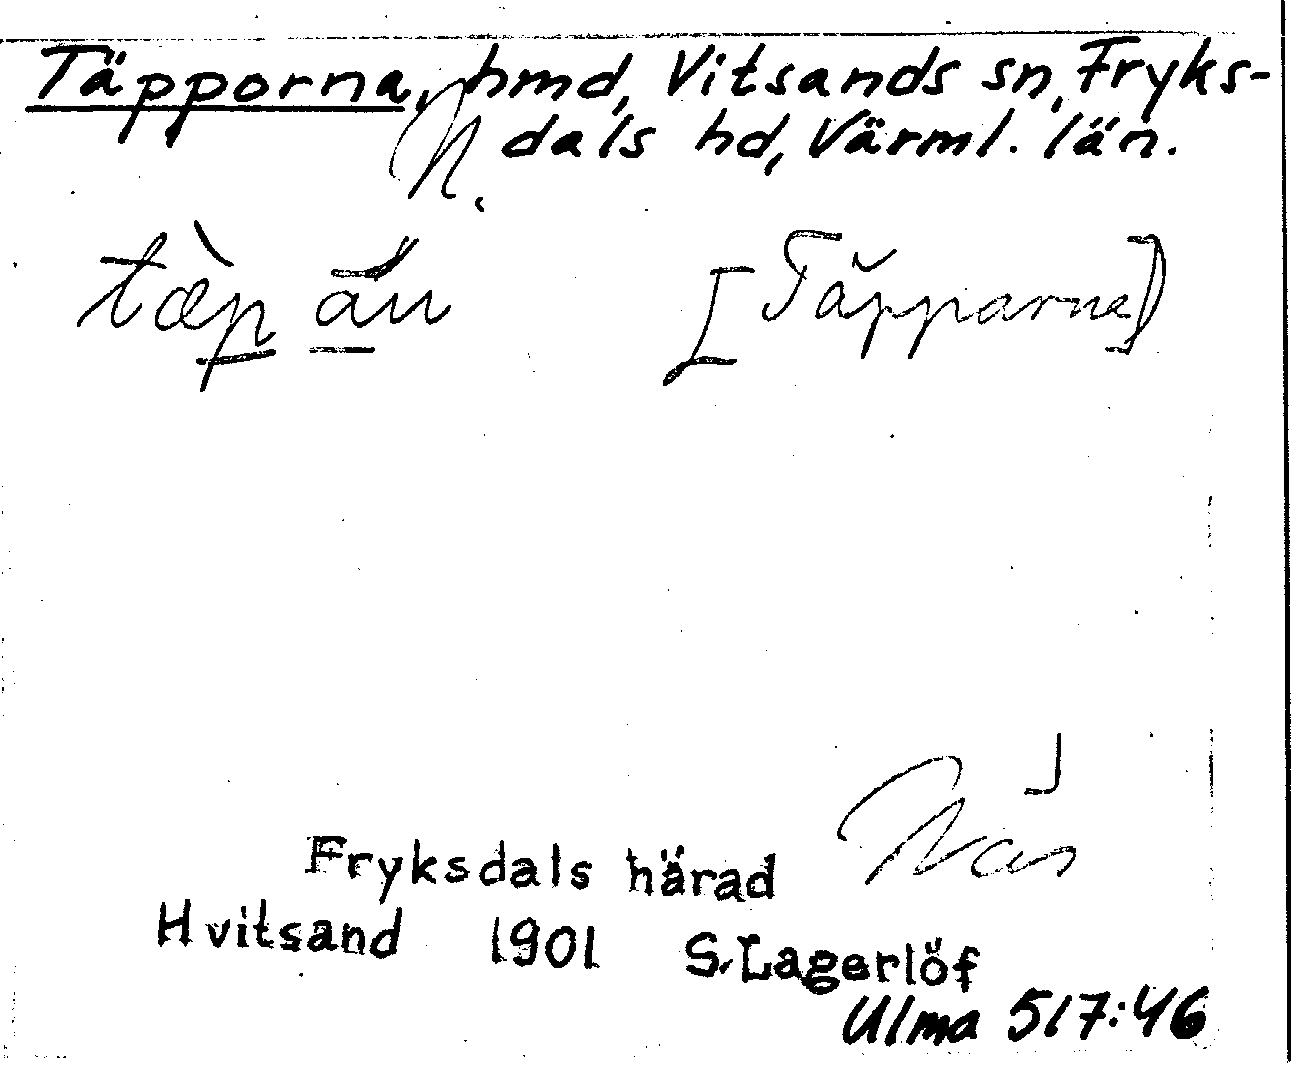 Täpporna, hmd, Vitsands sn, Fryks-
N. dals hd, Värml. län.
tæ̀p ān [Täpparne]
Fryksdals härad
Hvitsand 1901 S. Lagerlöf
Ulma 517:46